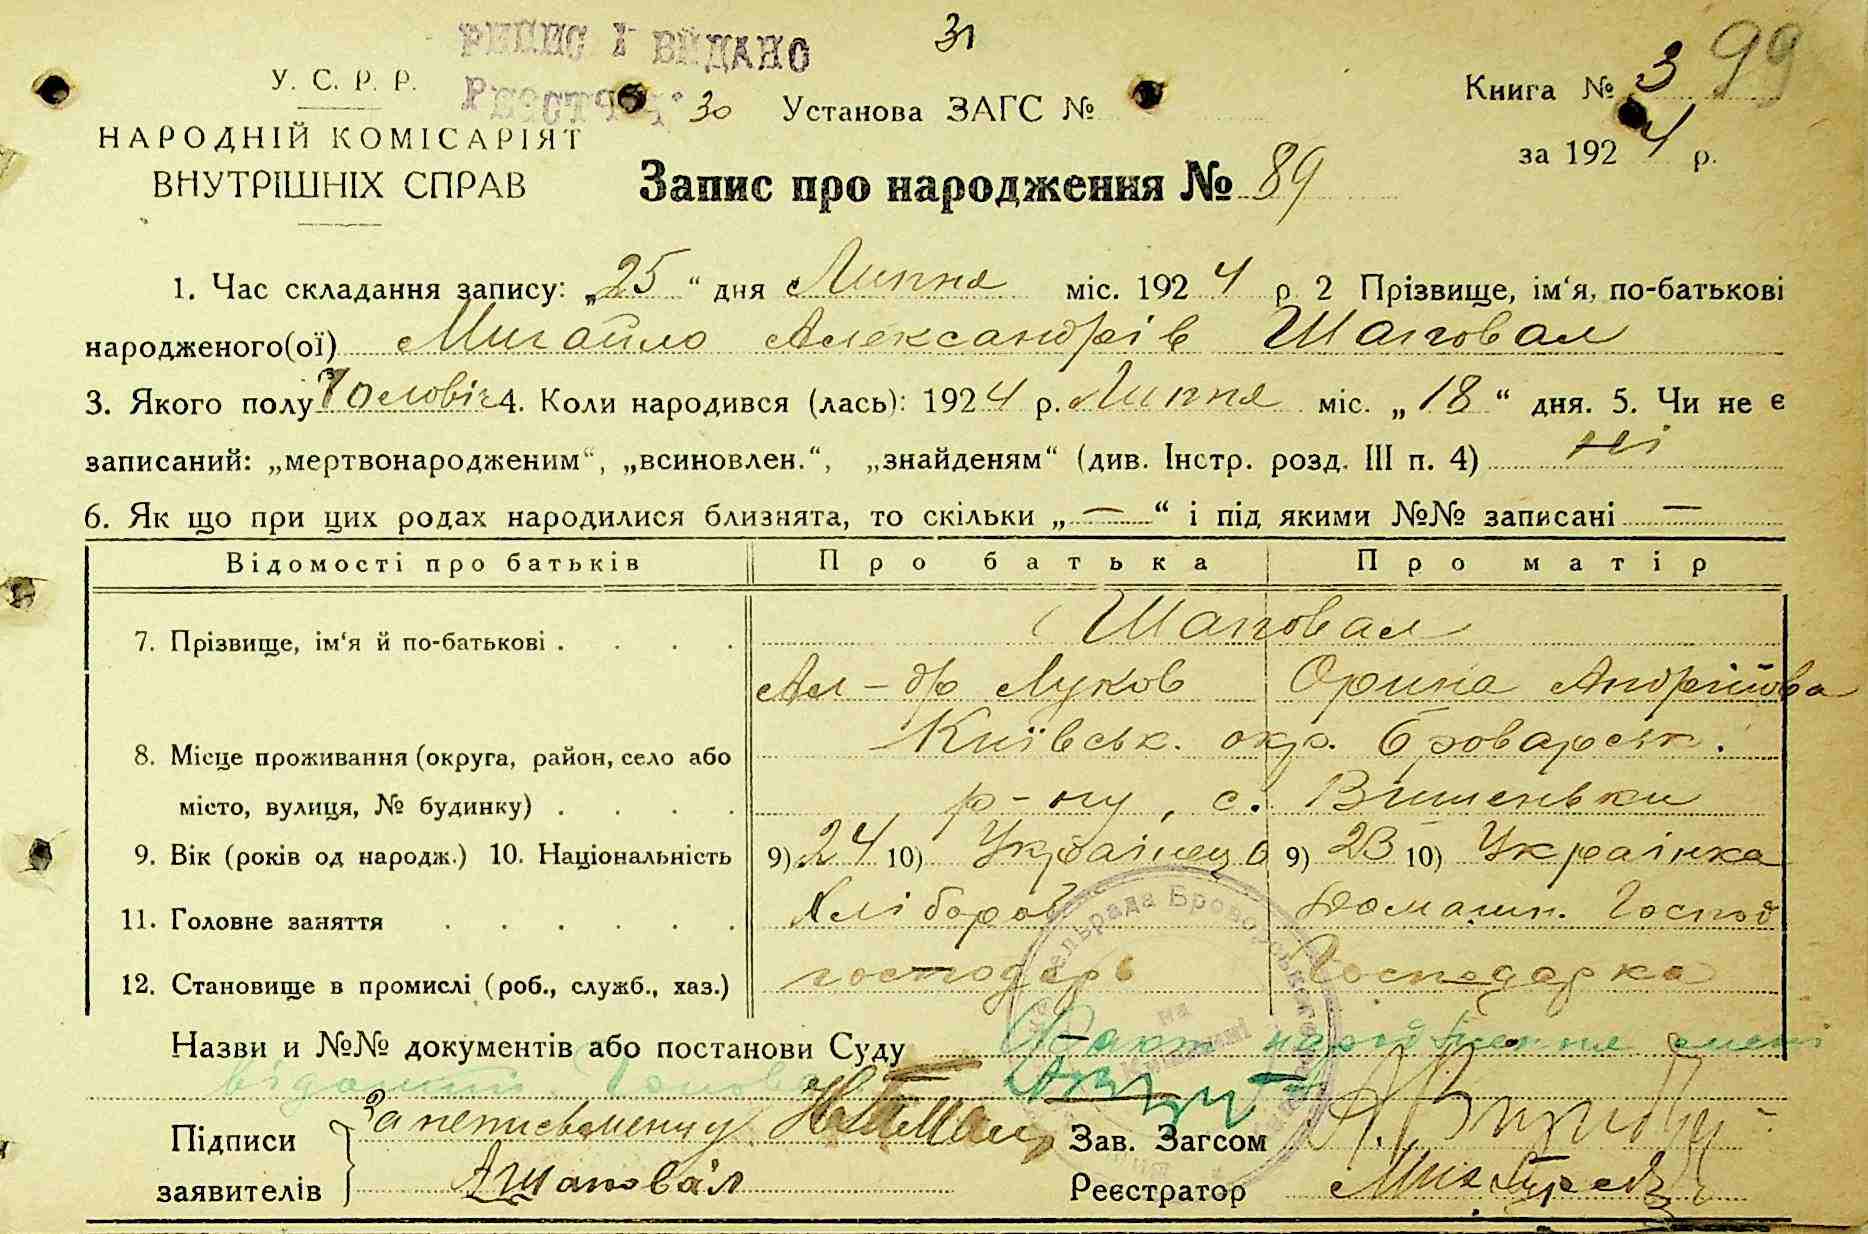 31
У. С. Р. Р.
І ВИДАНО
30 Установа ЗАГС №
Книга № 3 99
НАРОДНІЙ КОМІСАРІЯТ
ВНУТРІШНІХ СПРАВ
за 1924 р.
Запис про народження № 89
1. Час складання запису: „25“ дня Липня міс. 1924 р 2 Прізвище, ім‘я, по-батькові
народженого(ої) Михайло Александрів Шаповал
3. Якого полу Чоловіч 4. Коли народився (лась): 1924 р. Липня міс. „18“ дня. 5. Чи не є
записаний: „мертвонародженим“, „всиновлен.“, „знайденям“ (див. Інстр. розд. III п. 4) Ні
6. Як що при цих родах народилися близнята, то скільки „—“ і під якими №№ записані —
Відомості про батьків Про батька Про матір
7. Прізвище, ім‘я й по-батькові . . . . Шаповал
Ал-др Луков Орина Андрійова
8. Місце проживання (округа, район, село або Київськ. окр. Броварськ.
місто, вулиця, № будинку) . . . . р-ну, с. Вишеньки
9. Вік (років од народж.) 10. Національність 9) 24 10) Українец 9) 23 10) Українка
11. Головне заняття . . . . . . Хлібороб Домашн. Господ
12. Становище в промислі (роб., служб., хаз.) господарь Господарка
Назви и №№ документів або постанови Суду Факт народження мені
відомий. Голова
Підписи За неписьменну Зав. Загсом
заявителів АШаповал Реєстратор